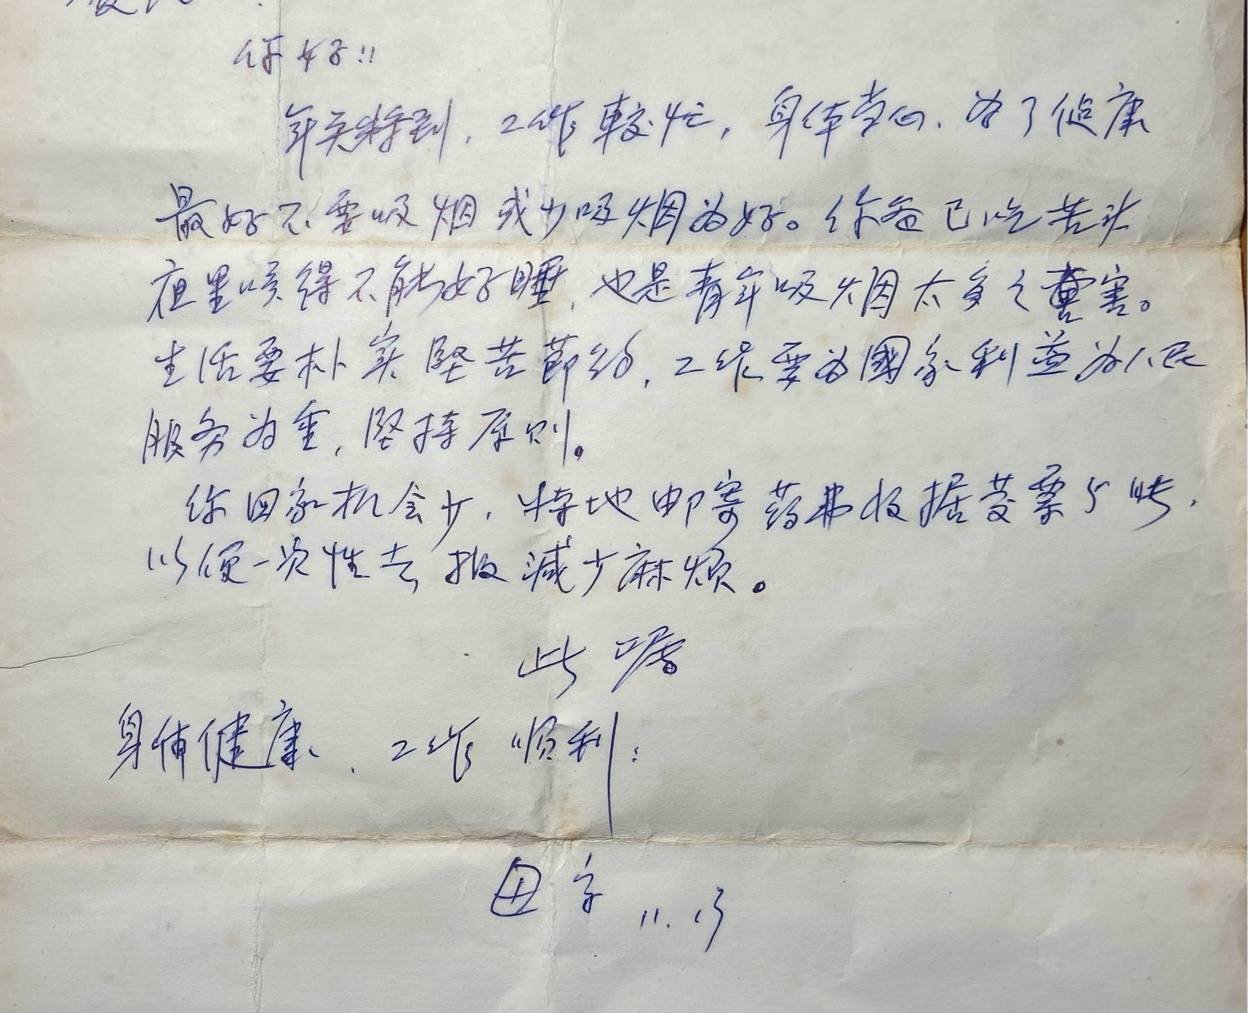 你好!!
年关将到，工作較忙，身体当心、为了健康
最好不要吸烟或少吸烟为好。你爸已吃苦头
夜里咳得不能好睡，也是青年吸烟太多之害。
生活要朴实堅苦節约，工作要为國家利益为人民
服务为重，堅持原则。
你回家机会少，特地邮寄药费收据发票5张，
以便一次性去报减少麻烦。
此嘱
身体健康、工作顺利：
母字 11.13